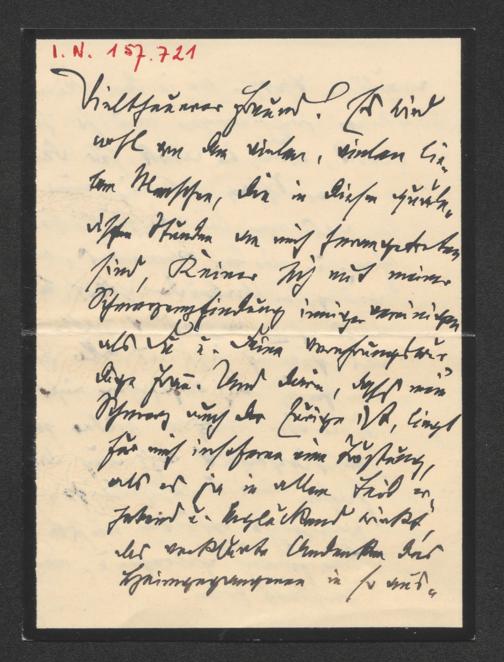 I.N. 157.721
Vieltheuerer Freund! Es wird
wohl von den vielen, vielen lie-
ben Menschen, die in diesen quäl-
endsten Stunden an mich herangetreten
sind, Keiner sich mit meiner
Schmerzempfindung inniger vereinigen
als Du u. Deine verehrungswür
dige Frau. Und darin, dass mein
Schmerz auch der Eurige ist, liegt
für mich insoferne eine Tröstung,
als es ja in allem Leid er
hebend u. beglückend wirkt,
das verklärte Andenken des
Heimgegangenen in so aus-